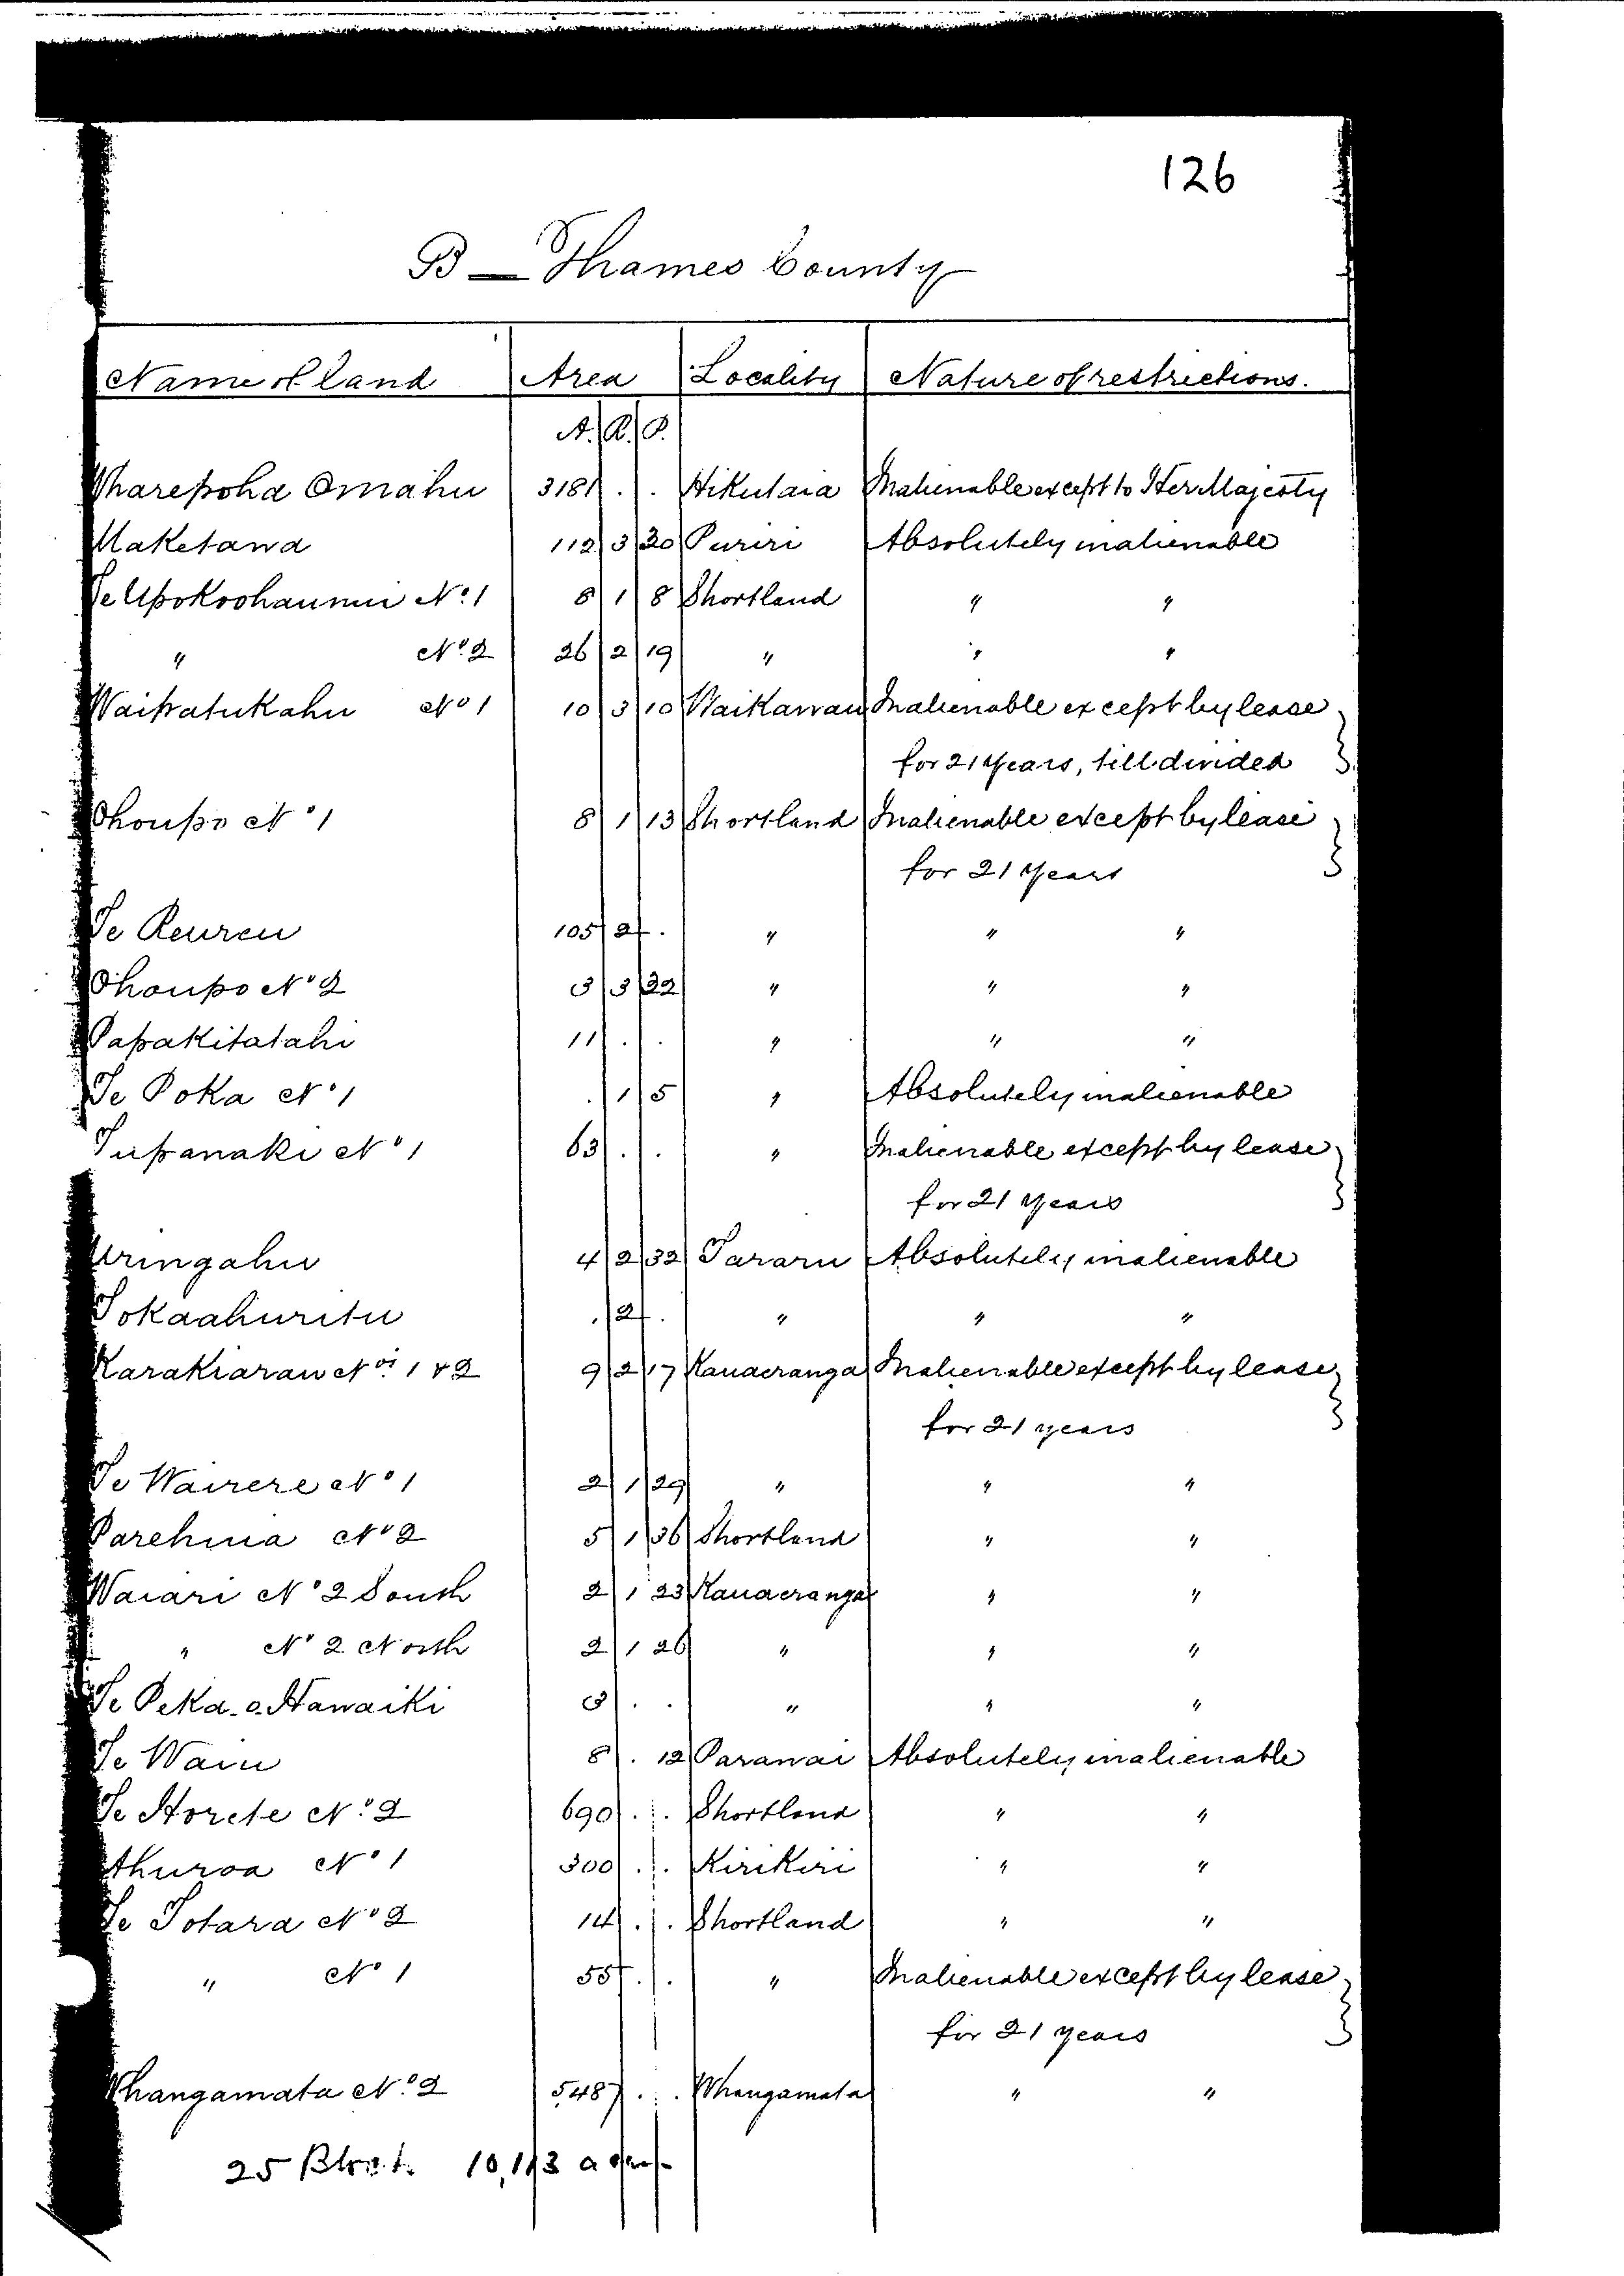 126
B — Thames County
Name of land Area Locality Nature of restrictions.
A. R. P.
Wharepoha Omahu 3181 . . Hikutaia Inalienable except to Her Majesty
Maketawa 112 3 20 Puriri Absolutely inalienable
Te Upokoohaumia No. 1 8 1 8 Shortland " "
" No. 2 26 2 19 " " "
Waipatukahu No 1 10 3 10 Waikawau Inalienable except by lease
for 21 Years, till divided }
Ohoupo No 1 8 1 13 Shortland Inalienable except by lease
for 21 Years }
Te Reureu 105 2 . " " "
Ohoupo No 2 3 3 22 " " "
Papakitatahi 11 . . " " "
Te Poka No 1 . 1 5 " Absolutely inalienable
Tupanaki No 1 63 . . " Inalienable except by lease
for 21 Years }
Uringahu 4 2 32 Tararu Absolutely inalienable
Tokaahuritu . 2 . " " "
Karakiarau Nos. 1 & 2 9 2 17 Kauaeranga Inalienable except by lease
for 21 years }
Te Wairere No 1 2 1 29 " " "
Parehina No 2 5 1 36 Shortland " "
Waiari No 2 South 2 1 23 Kauaeranga " "
" No 2 North 2 1 26 " " "
Te Peka o Hawaiki 3 . . " " "
Te Waiu 8 . 12 Parawai Absolutely inalienable
Te Horete No. 2 690 . . Shortland " "
Ahuroa No 1 300 . . Kirikiri " "
Te Totara No 2 14 . . Shortland " "
" No 1 55 . . " Inalienable except by lease
for 21 years }
Whangamata No. 2 5,487 . . Whangamata " "
25 Blocks 10,113 acres